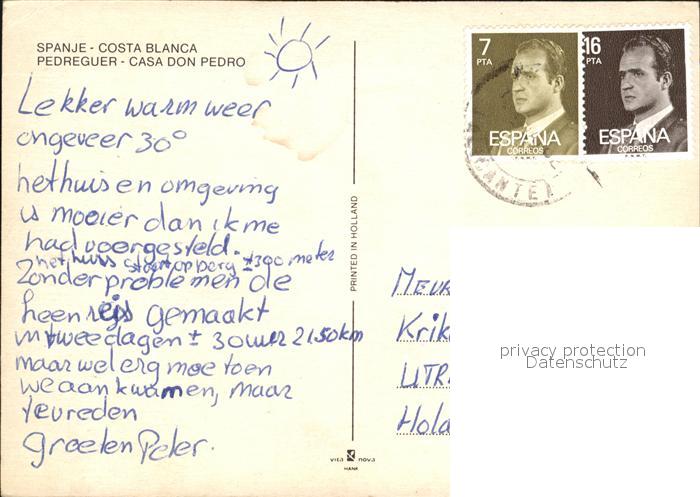 SPANJE - COSTA BLANCA
PEDREGUER - CASA DON PEDRO
Lekker warm weer
ongeveer 30°
het huis en omgeving
is mooier dan ik me
had voorgesteld.
het huis staat op berg ± 300 meter
Zonder problemen de
heenreis gemaakt
in twee dagen ± 30 uur 2150km
maar wel erg moe toen
we aankwamen, maar
tevreden
groeten Peter.
PRINTED IN HOLLAND
vita nova
7
PTA
ESPAÑA
CORREOS
16
PTA
ESPAÑA
CORREOS
MEUR
Krik
UTR
Hola
privacy protection
Datenschutz